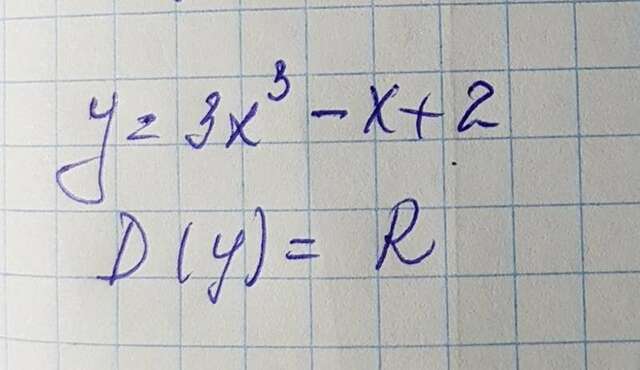 y = 3x³ - x + 2
D(y) = R